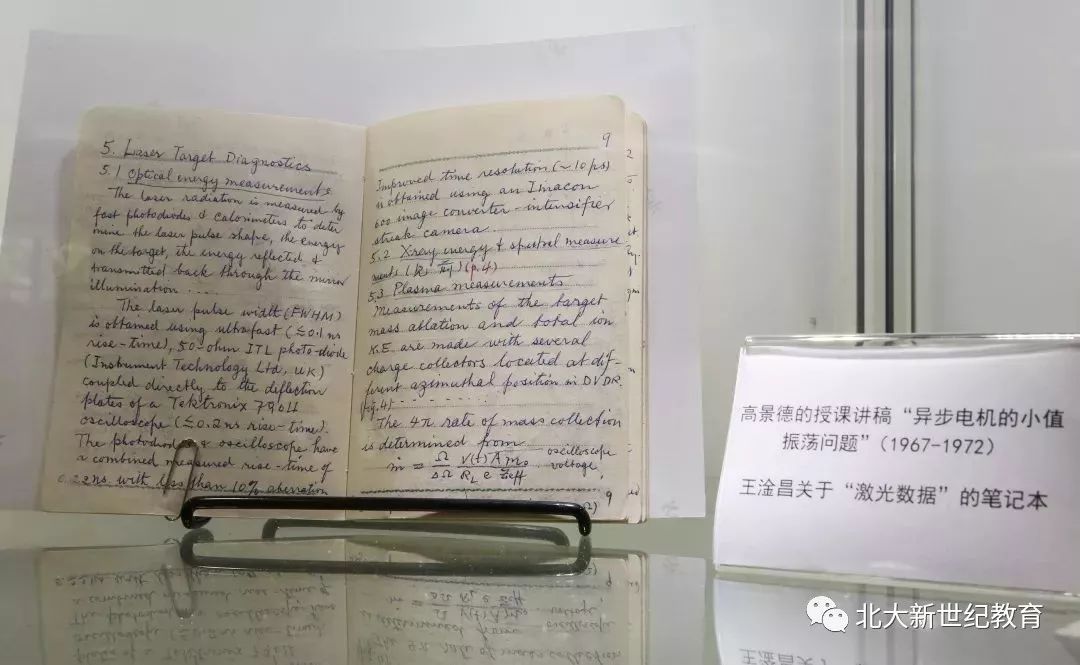 5. Laser Target Diagnostics
5.1 Optical energy measurements
The laser radiation is measured by
fast photodiodes & calorimeters to deter
mine the laser pulse shape, the energy
on the target, the energy reflected &
transmitted back through the mirror
illumination ....
The laser pulse width (FWHM)
is obtained using ultrafast (≦0.1 ns
rise-time), 50-ohm ITL photo-diode
(Instrument Technology Ltd, UK)
coupled directly to the deflection
plates of a Tektronix 7904
oscilloscope (≦0.2 ns rise-time).
The photodiode & oscilloscope have
a combined measured rise-time of
0.22 ns with less than 10% aberration
9
Improved time resolution (~10 ps)
is obtained using an Imacon
600 image converter-intensifier
streak camera.
5.2 Xray energy & spectral measure
ments (p.4)
5.3 Plasma measurements
Measurements of the target
mass ablation and total ion
K.E. are made with several
charge collectors located at dif-
ferent azimuthal position in DVDR.
Fig.4)
The 4π rate of mass collection
is determined from oscilloscope
ṁ = Ω/ΔΩ V(t) A m₀/R_L e Zeff voltage
9
高景德的授课讲稿“异步电机的小值
振荡问题”(1967-1972)
王淦昌关于“激光数据”的笔记本
北大新世纪教育